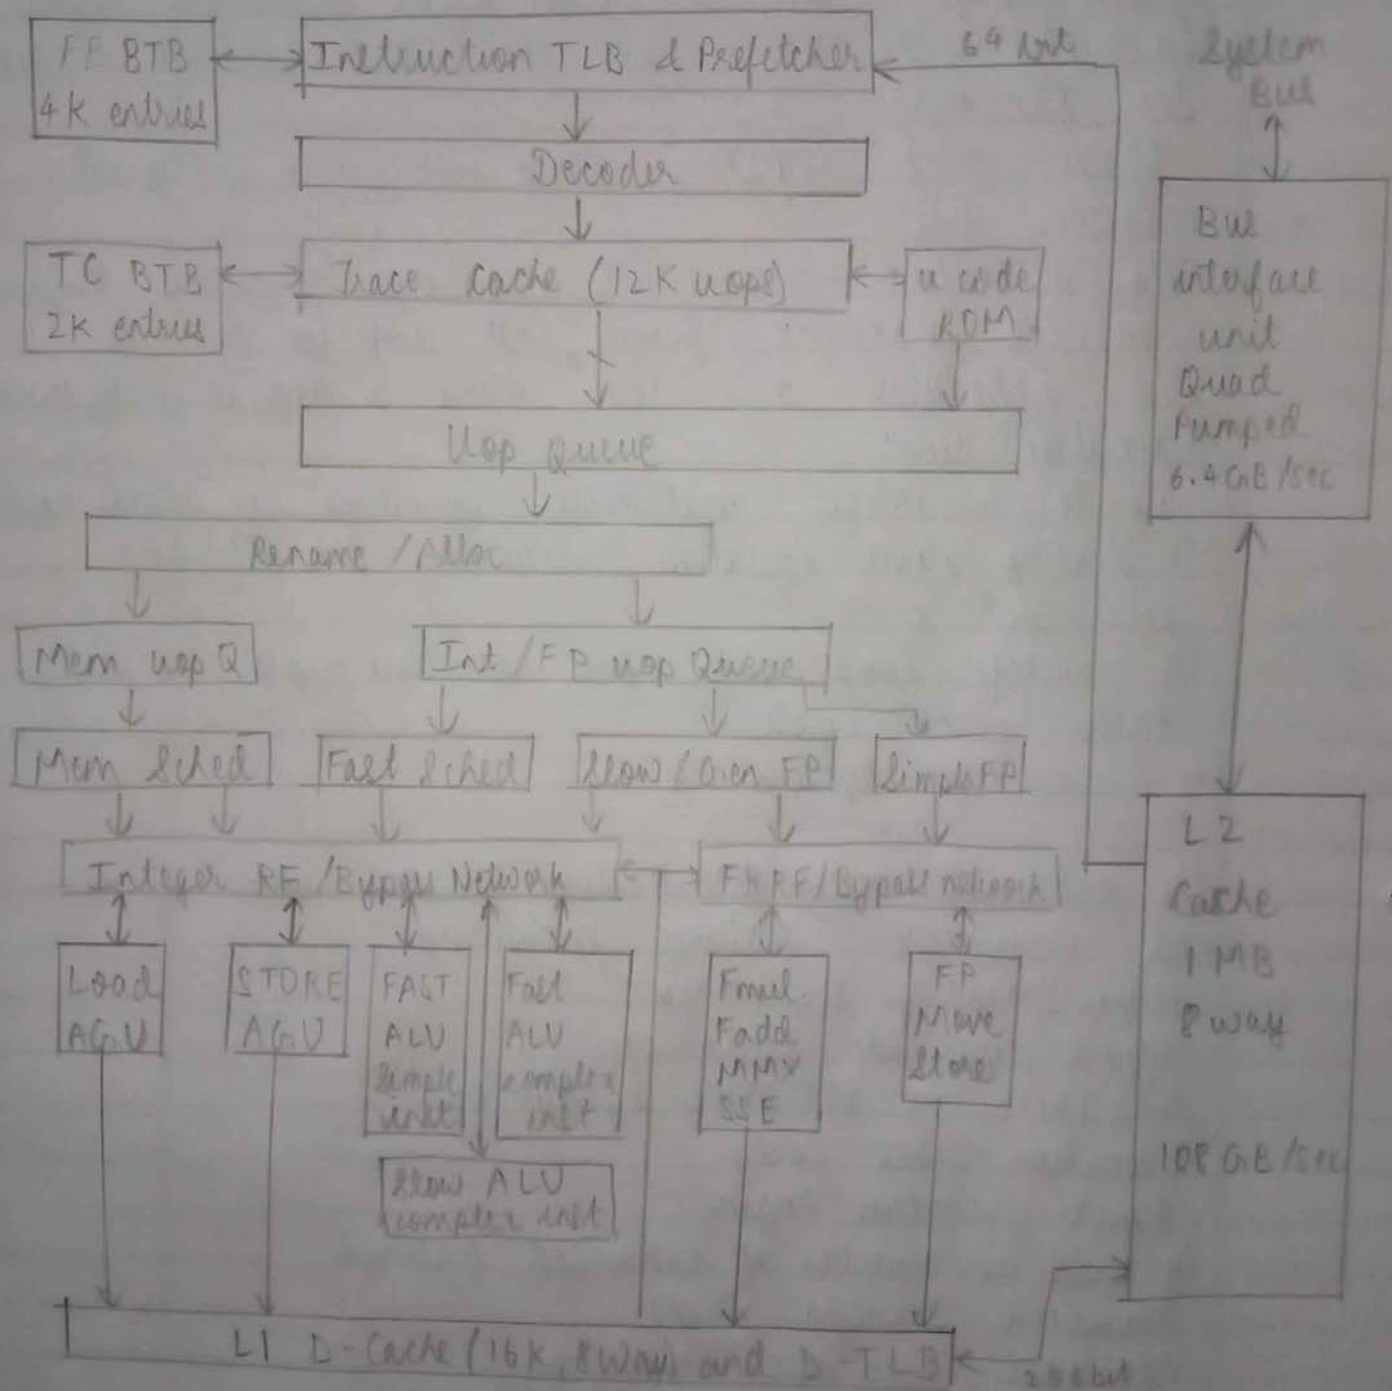 FE BTB
4K entries
Instruction TLB & Prefetcher
64 bit
System
Bus
Decoder
TC BTB
2K entries
Trace Cache (12K uops)
u code
ROM
Bus
interface
unit
Quad
Pumped
6.4 GB/sec
Uop Queue
Rename / Alloc
Mem uop Q
Int / FP uop Queue
Mem Sched
Fast Sched
Slow / Gen FP
Simple FP
L2
Cache
1 MB
8 way
108 GB/sec
Integer RF / Bypass Network
FP RF / Bypass network
Load
AGU
STORE
AGU
FAST
ALU
Simple
inst
Fast
ALU
complex
inst
Fmul
Fadd
MMX
SSE
FP
Move
Store
Slow ALU
complex inst
L1 D-Cache (16K, 8way) and D-TLB
256 bit